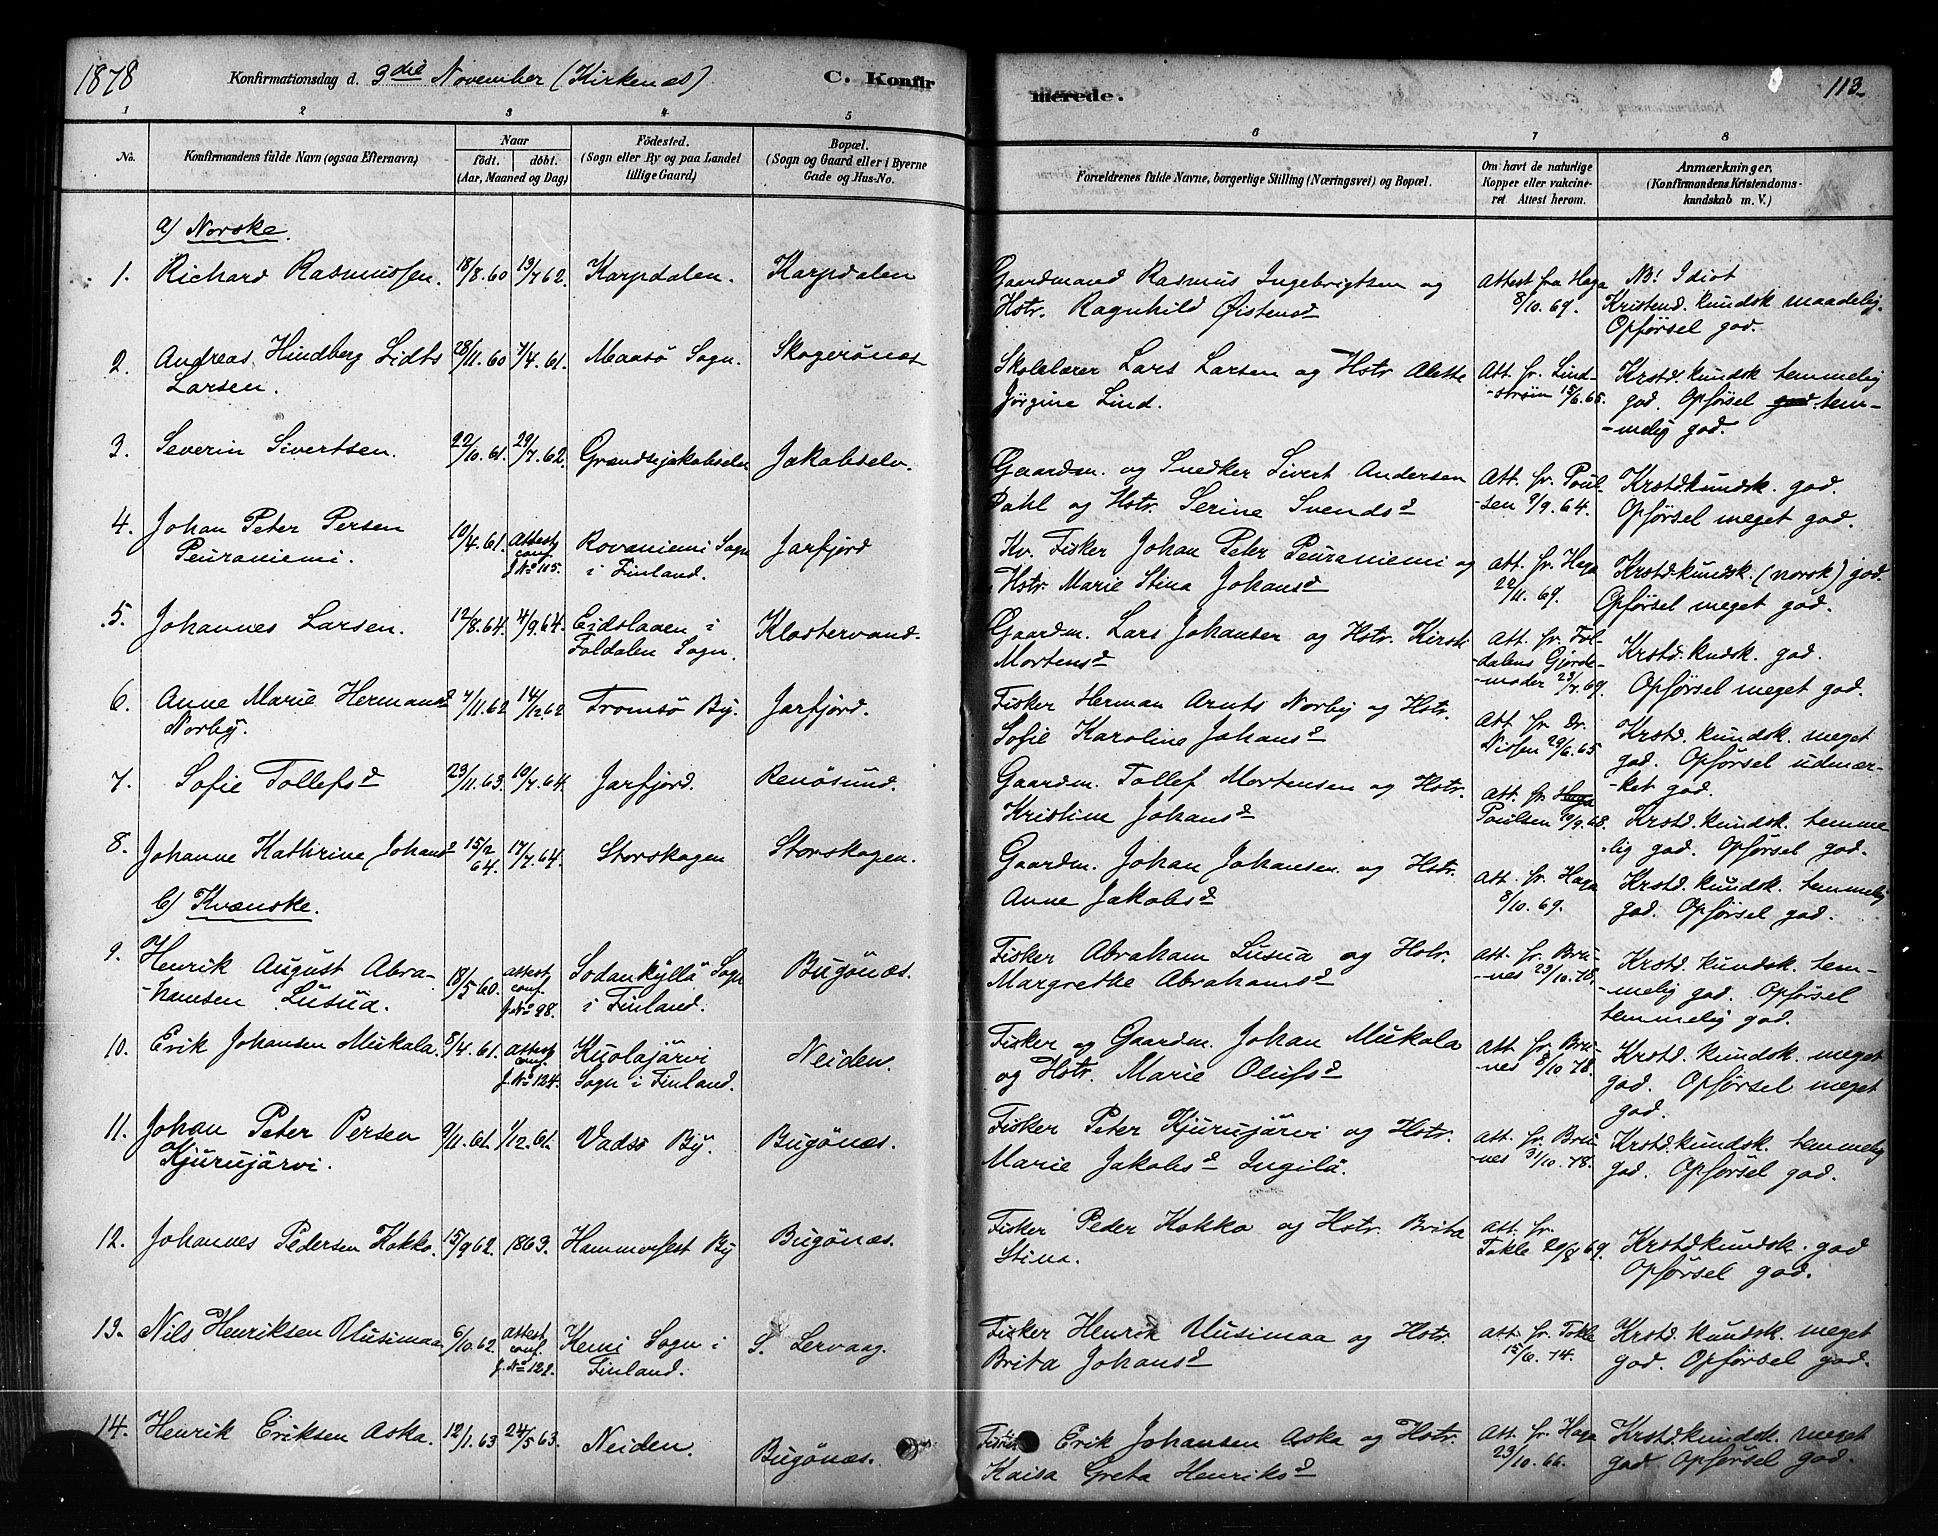 1878
Konfirmationsdag d. 3die November (Kirkenæs)
C. Konfirmerede.
113
1 2 3 4 5 6 7 8
No.
Konfirmandens fulde Navn (ogsaa Efternavn)
Naar
födt. döbt.
(Aar, Maaned og Dag)
Födested.
(Sogn eller By og paa Landet
tillige Gaard)
Bopæl.
(Sogn og Gaard eller i Byerne
Gade og Hus-No.
Forældrenes fulde Navne, borgerlige Stilling (Næringsvei) og Bopæl.
Om havt de naturlige
Kopper eller vakcine-
ret Attest herom.
Anmærkninger,
(Konfirmandens Kristendoms-
kundskab m. V.)
a) Norske.
1. Richard Rasmussen. 18/8.60 13/7.62. Karpdalen. Karpdalen
Gaardmand Rasmus Ingebrigtsen og
Hstr. Ragnhild Øistensd
Attest fra Haga
8/10.69.
NB! Idiot
Kristend.kundsk. maadelig.
Opførsel god.
2. Andreas Hindberg Lidts
Larsen.
28/11.60 7/4.61. Maasö Sogn. Skogerönæs
Skolelærer Lars Larsen og Hstr. Alette
Jörgine Lind.
Att. fr. Lind-
-ström 15/6.65.
Krstd.kundsk temmelig
god. Opførsel god tem-
-melig god.
3. Severin Sivertsen. 22/10.61. 29/7.62. Grændsejakobselv Jakobselv.
Gaardm. og Snedker Sivert Andersen
Dahl og Hstr. Serine Svendsd
Att. fr. Poul-
-sen 9/9.64.
Krstdkundsk. god.
Opførsel meget god.
4. Johan Peter Persen
Peuraniemi.
10/4.61. Attest
conf.
J.No 115.
Rovaniemi Sogn
i Finland.
Jarfjord
Kv. Fisker Johan Peter Peuraniemi og
Hstr. Marie Stina Johansd
Att. fr. Haga
22/11.69.
Krstdkundsk. (norsk) god.
Opførsel meget god.
5. Johannes Larsen. 12/8.64. 4/9.64. Eidslaaen i
Foldalen Sogn.
Klostervand.
Gaardm. Lars Johansen og Hstr. Kirsti
Mortensd
Att. fr. Fol-
dalens Gjorde-
-moder 23/7.69.
Krstd.kndsk. god.
Opførsel meget god.
6. Anne Marie Hermansd
Norby.
7/11.62 14/12.62 Tromsö By. Jarfjord.
Fisker Herman Arnts Norby og Hstr.
Sofie Karoline Johansd
Att. fr. Dr.
Nissen 29/6.65
Krstd.kundsk. meget
god. Opførsel udmær-
-ket god.
7. Sofie Tollefsd 23/11.63. 10/7.64. Jarfjord. Renösund.
Gaardm. Tollef Mortensen og Hstr.
Kristine Johansd
Att. fr. Haga
Poulsen 10/9.68.
Krstd.kundsk. temme
-lig god. Opførsel god.
8. Johanne Kathrine Johansd 15/2 64. 17/7.64. Storskogen Storskogen.
Gaardm. Johan Johansen og Hstr.
Anne Jakobsd
Att. fr. Haga
8/10.69.
Krstd.kundsk. temmelig
god. Opførsel god.
b) Kvænske.
9. Henrik August Abra-
-hamsen Lusua.
18/5.60. attest
conf.
J.No 98.
Sodankyllä Sogn
i Finland.
Bugönæs.
Fisker Abraham Lusua og Hstr.
Margrethe Abrahamsd
Att. fr. Bru-
-nes 23/10.78.
Krstd.kundsk. tem-
-melig god. Opførsel
temmelig god.
10. Erik Johansen Mukala. 8/4.61. attest
conf.
J.No 124.
Kuolajärvi
Sogn i Finland.
Neiden.
Fisker og Gaardm. Johan Mukola
og Hstr. Marie Olufsd
Att. fr. Bru-
-nes 8/10.78.
Krstd.kundsk. meget
god. Opførsel meget
god.
11. Johan Peter Persen
Kjurujärvi.
9/11.61. 1/12.61. Vadsö By. Bugönæs.
Fisker Peter Kjurujärvi og Hstr.
Marie Jakobsd Ingilä.
Att. fr. Bru-
-nes 31/10.78.
Krstdkundsk. temmelig
god. Opførsel god.
12. Johannes Pedersen Kokko. 15/9.62. 1863. Hammerfest By Bugönæs.
Fisker Peder Kokko og Hstr. Brita
Stina.
Att. fr.
Tokle 20/8.69.
Krstdkundsk. god
Opførsel god.
13. Nils Henriksen Uusimaa 6/10.62 attest
conf.
J.No 122.
Kemi Sogn i
Finland.
S. Lervaag.
Fisker Henrik Uusimaa og Hstr.
Brita Johansd
Att. fr. Tokle
15/6.74.
Krstd.kundsk. meget
god. Opførsel god.
14. Henrik Eriksen Aska. 12/1.63 24/5.63. Neiden. Bugönæs.
Fisker Erik Johansen Aska og Hstr.
Kaisa Greta Henriksd
Att. fr. Haga
23/10.66.
Krstdkundsk. meget
god Opførsel god.